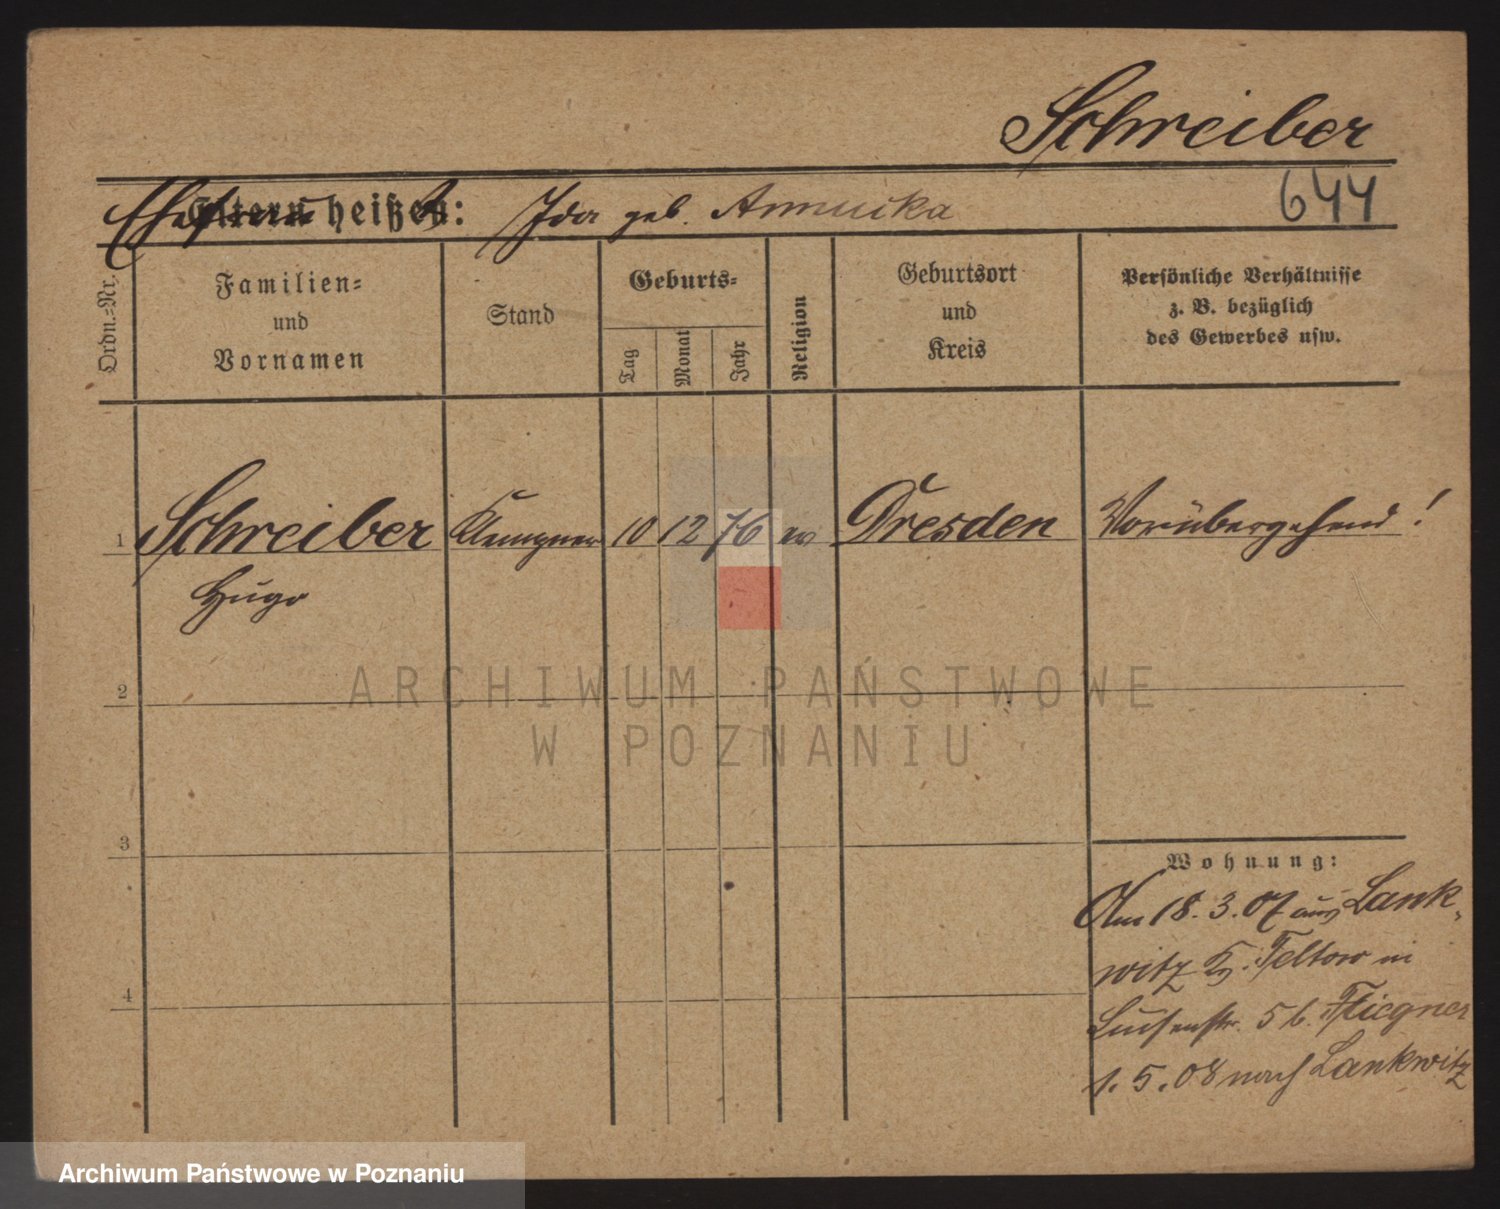 Schreiber
644
Ehefrau heißt: Ida geb. Annucka
Ordn.=Nr.
Familien=
und
Vornamen
Stand
Geburts=
Tag
Monat
Jahr
Religion
Geburtsort
und
Kreis
Persönliche Verhältnisse
z. B. bezüglich
des Gewerbes usw.
1 Schreiber Klempner 10 12 76 ev Dresden Vorübergehend!
Hugo
2
ARCHIWUM PAŃSTWOWE
W POZNANIU
3
Wohnung:
Am 18.3.07 aus Lank-
witz Kr. Teltow in
Luisenstr. 5 b. Fliegner
4
1.5.08 nach Lankwitz
Archiwum Państwowe w Poznaniu